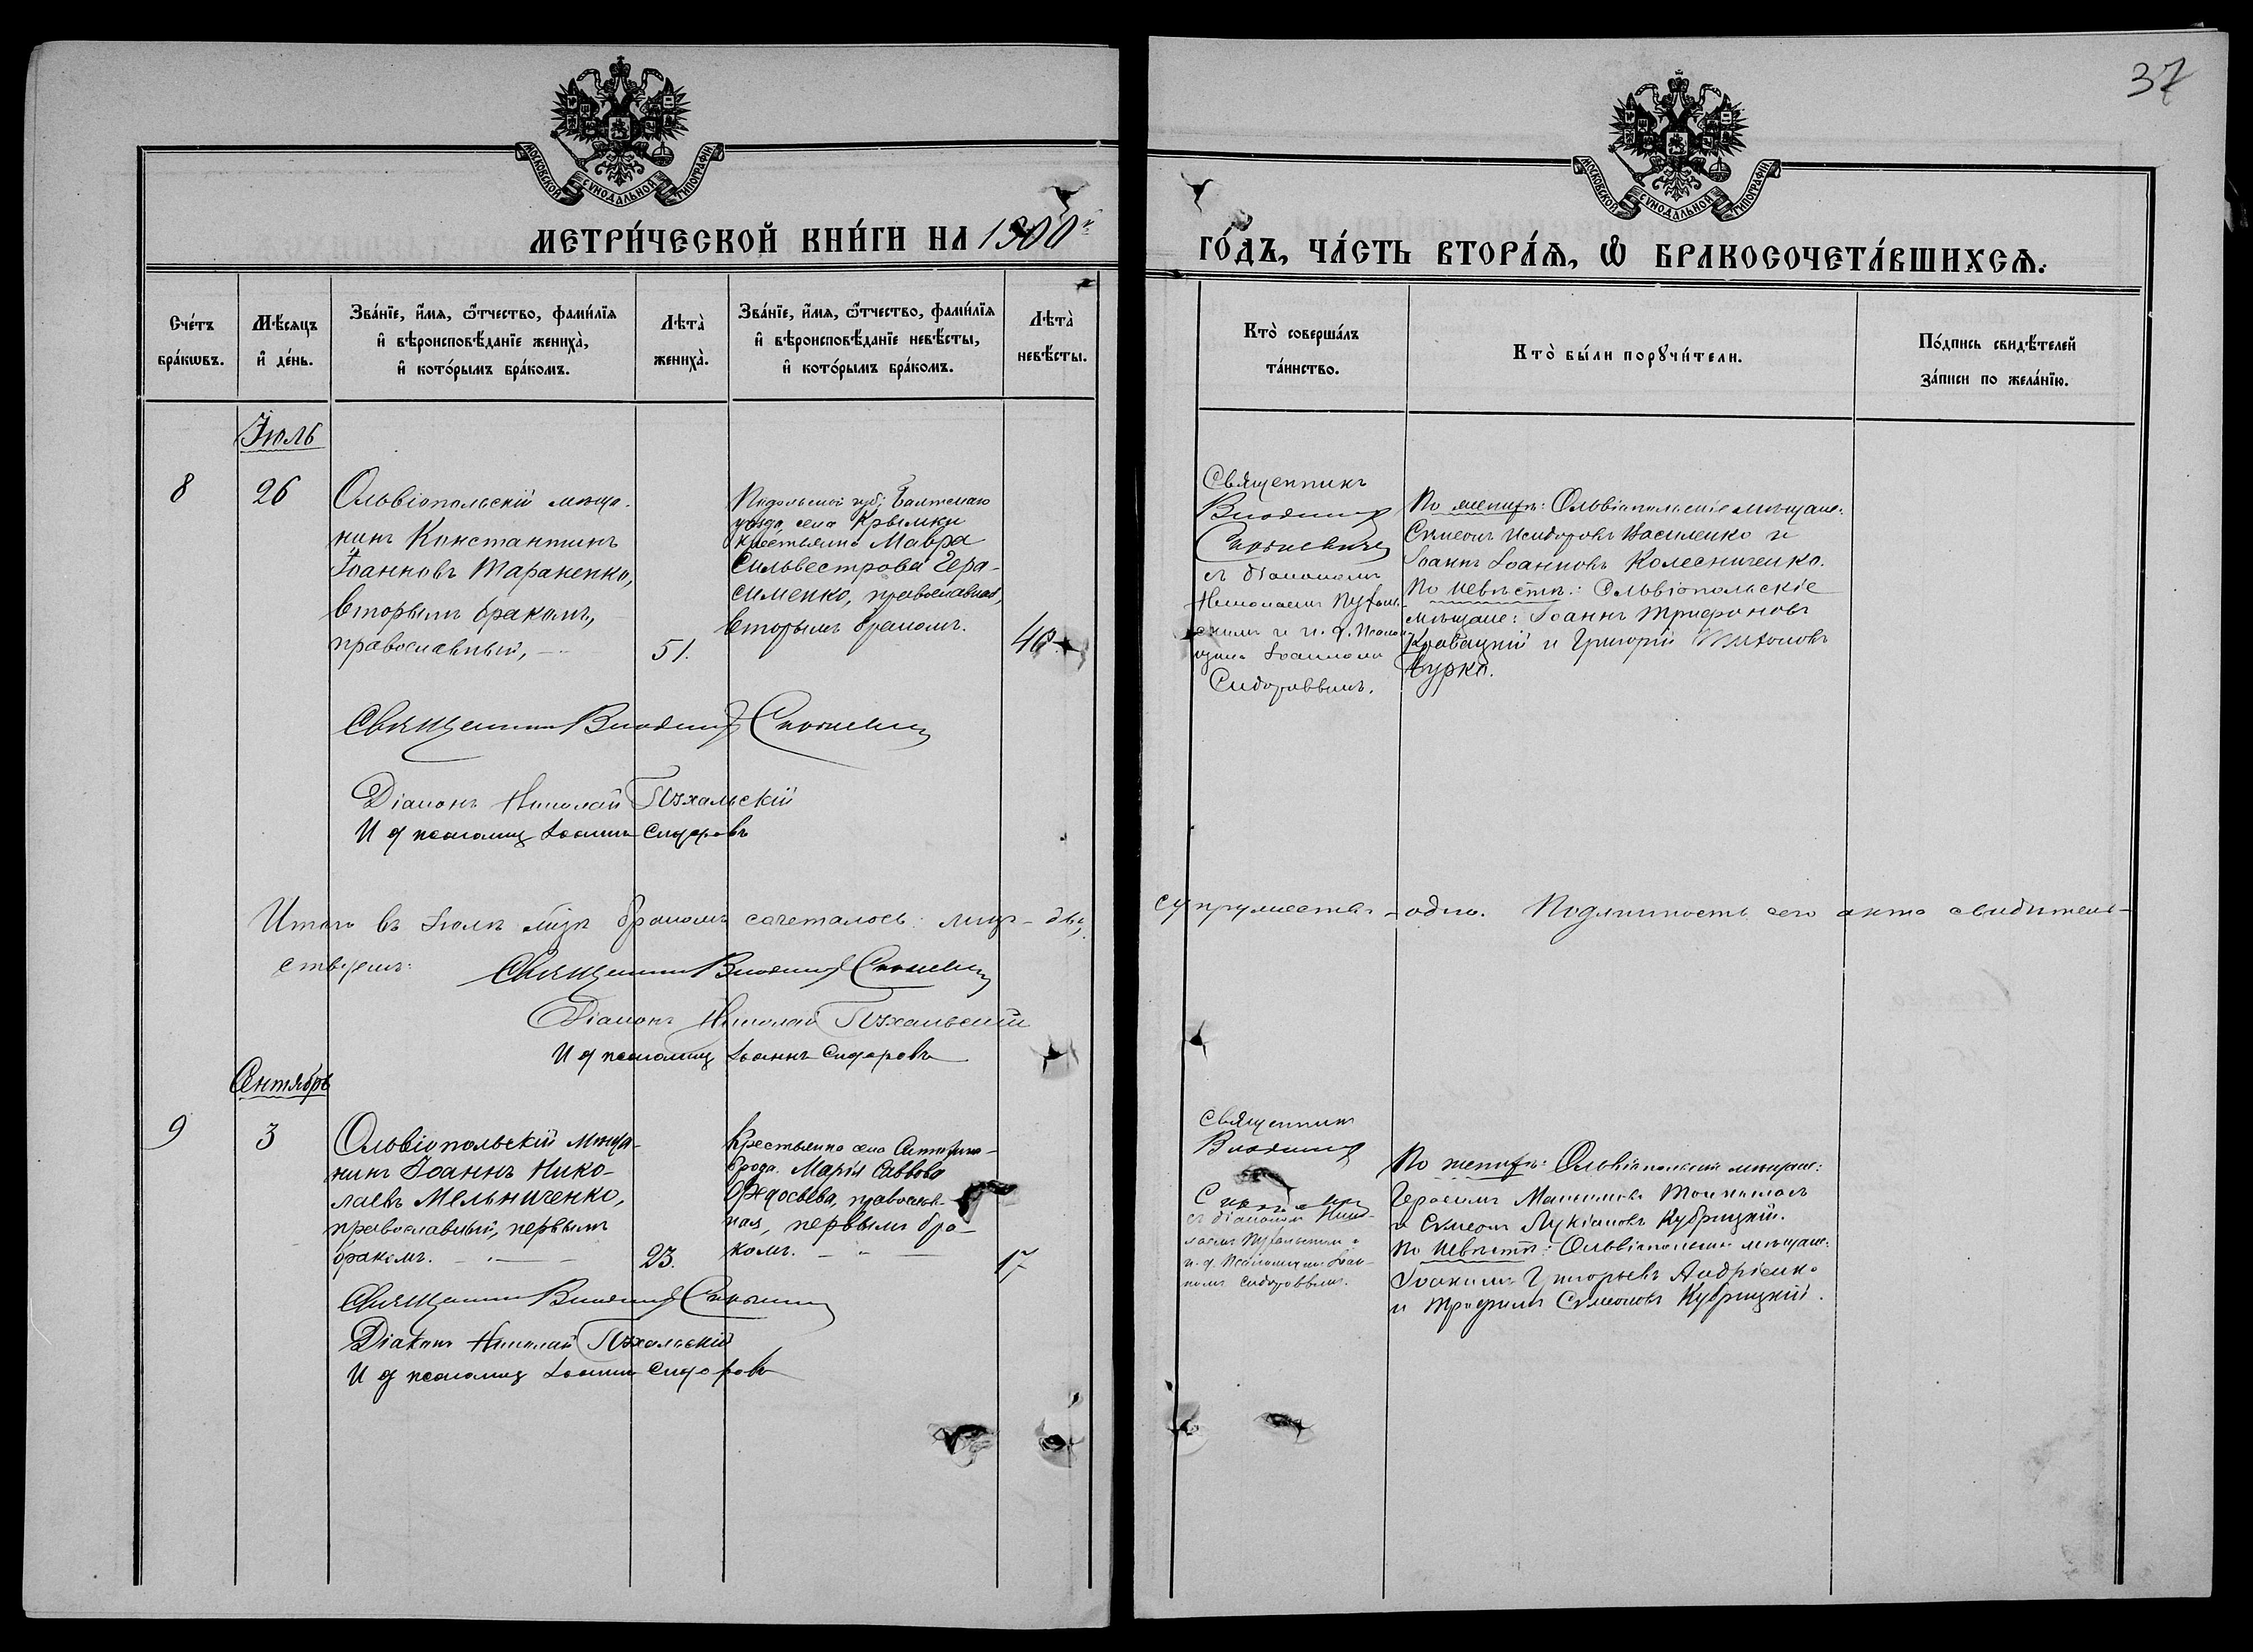 37
МОСКОВСКОЙ СѴНОДАЛЬНОЙ ТИПОГРАФІИ
МОСКОВСКОЙ СѴНОДАЛЬНОЙ ТИПОГРАФІИ
МЕТРИ́ЧЕСКОЙ КНИ́ГИ НА 1900й
ГО́ДЪ, ЧА́СТЬ ВТОРА́Ѧ, Ѽ БРАКОСОЧЕТА́ВШИХСѦ.
Сче́тъ бра́кѡвъ.
Мѣ́сяцъ и҆ де́нь.
Зва́нїе, и҆́мя, ѻ҆́тчество, фами́лїя
и҆ вѣроисповѣ́данїе жениха̀,
и҆ кото́рымъ бра́комъ.
Лѣта̀ жениха̀.
Зва́нїе, и҆́мя, ѻ҆́тчество, фами́лїя
и҆ вѣроисповѣ́данїе невѣ́сты,
и҆ кото́рымъ бра́комъ.
Лѣта̀ невѣ́сты.
Кто̀ соверша́лъ
та́инство.
Кто̀ бы́ли порꙋчи́тели.
По́дпись свидѣ́телей
за́писи по жела́нїю.
Іюль
8
26
Ольвіопольскій мѣща-
нинъ Константинъ
Іоанновъ Тараненко,
вторымъ бракомъ,
православный,
51.
Подольской губ; Балтскаго
уѣзда, села Крымки
крестьянка Мавра
Сильвестрова Гера-
сименко, православная,
вторымъ бракомъ.
40
Священникъ
Владиміръ
съ діакономъ
Николаемъ Пухаль-
скимъ и и. д. псалом-
щика Іоанномъ
Сидоровымъ.
По женихѣ: Ольвіопольскіе мѣщане:
Сѵмеонъ Исидоровъ Василенко и
Іоаннъ Іоанновъ Колесниченко.
По невѣстѣ: Ольвіопольскіе
мѣщане: Іоаннъ Трифоновъ
Кравацкій и Григорій Тихоновъ
Бурка.
Священникъ Владиміръ
Діаконъ Николай Пухальскій
И д псаломщ Іоаннъ Сидоровъ
Итого въ Іюлѣ мѣцѣ бракомъ сочеталось: лицъ - два,
супружества - одно. Подлинность сего акта свидѣтель-
ствуемъ:
Священникъ Владиміръ
Діаконъ Николай Пухальскій
И д псаломщ Іоаннъ Сидоровъ
Сентябрь
9
3
Ольвіопольскій мѣща-
нинъ Іоаннъ Нико-
лаевъ Мельниченко,
православный, первымъ
бракомъ.
23.
Крестьянка села
брода. Марія Саввова
Ѳедосьева, православ-
ная, первымъ бра-
комъ.
17
Священникъ
Владиміръ
съ діакономъ Нико-
лаемъ Пухальскимъ и
и. д. псаломщика Іоан-
номъ Сидоровымъ.
По женихѣ: Ольвіопольскіе мѣщане:
Герасимъ Максимовъ
и Сѵмеонъ Лукіановъ Кубрицкій.
По невѣстѣ: Ольвіопольскіе мѣщане:
Іоакимъ Григорьевъ Андріенко
и Трофимъ Сѵмеоновъ Кубрицкій.
Священникъ Владиміръ
Діаконъ Николай Пухальскій
И д псаломщ Іоаннъ Сидоровъ